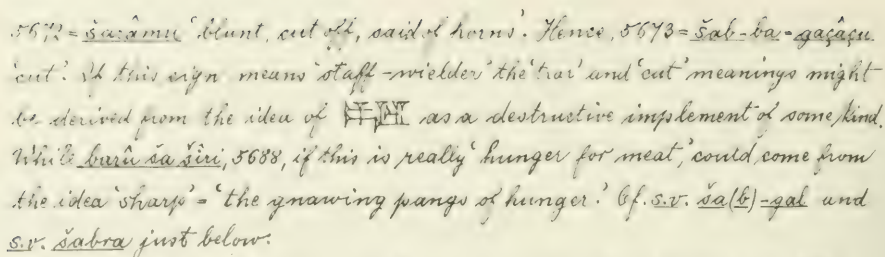 5672 = šarâmu 'blunt, cut off, said of horns'. Hence, 5673 = šab-ba = gaçâçu
'cut'. If this sign means 'staff-wielder' the 'tear' and 'cut' meanings might
be derived from the idea of as a destructive implement of some kind.
While burû ša šîri, 5688, if this is really 'hunger for meat', could come from
the idea 'sharp' = 'the gnawing pangs of hunger'. Cf. s.v. ša(b)-gal and
s.v. šabra just below.